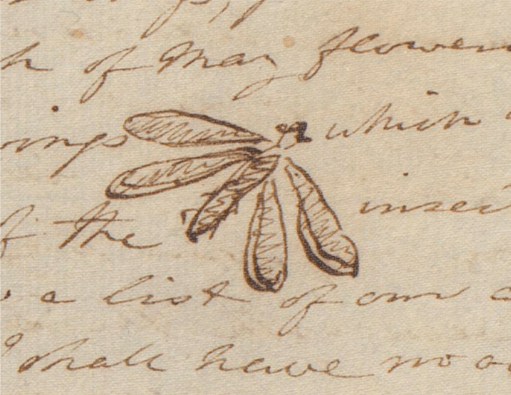 h of May flower
ings which
f the insec
a list of our
shall have no